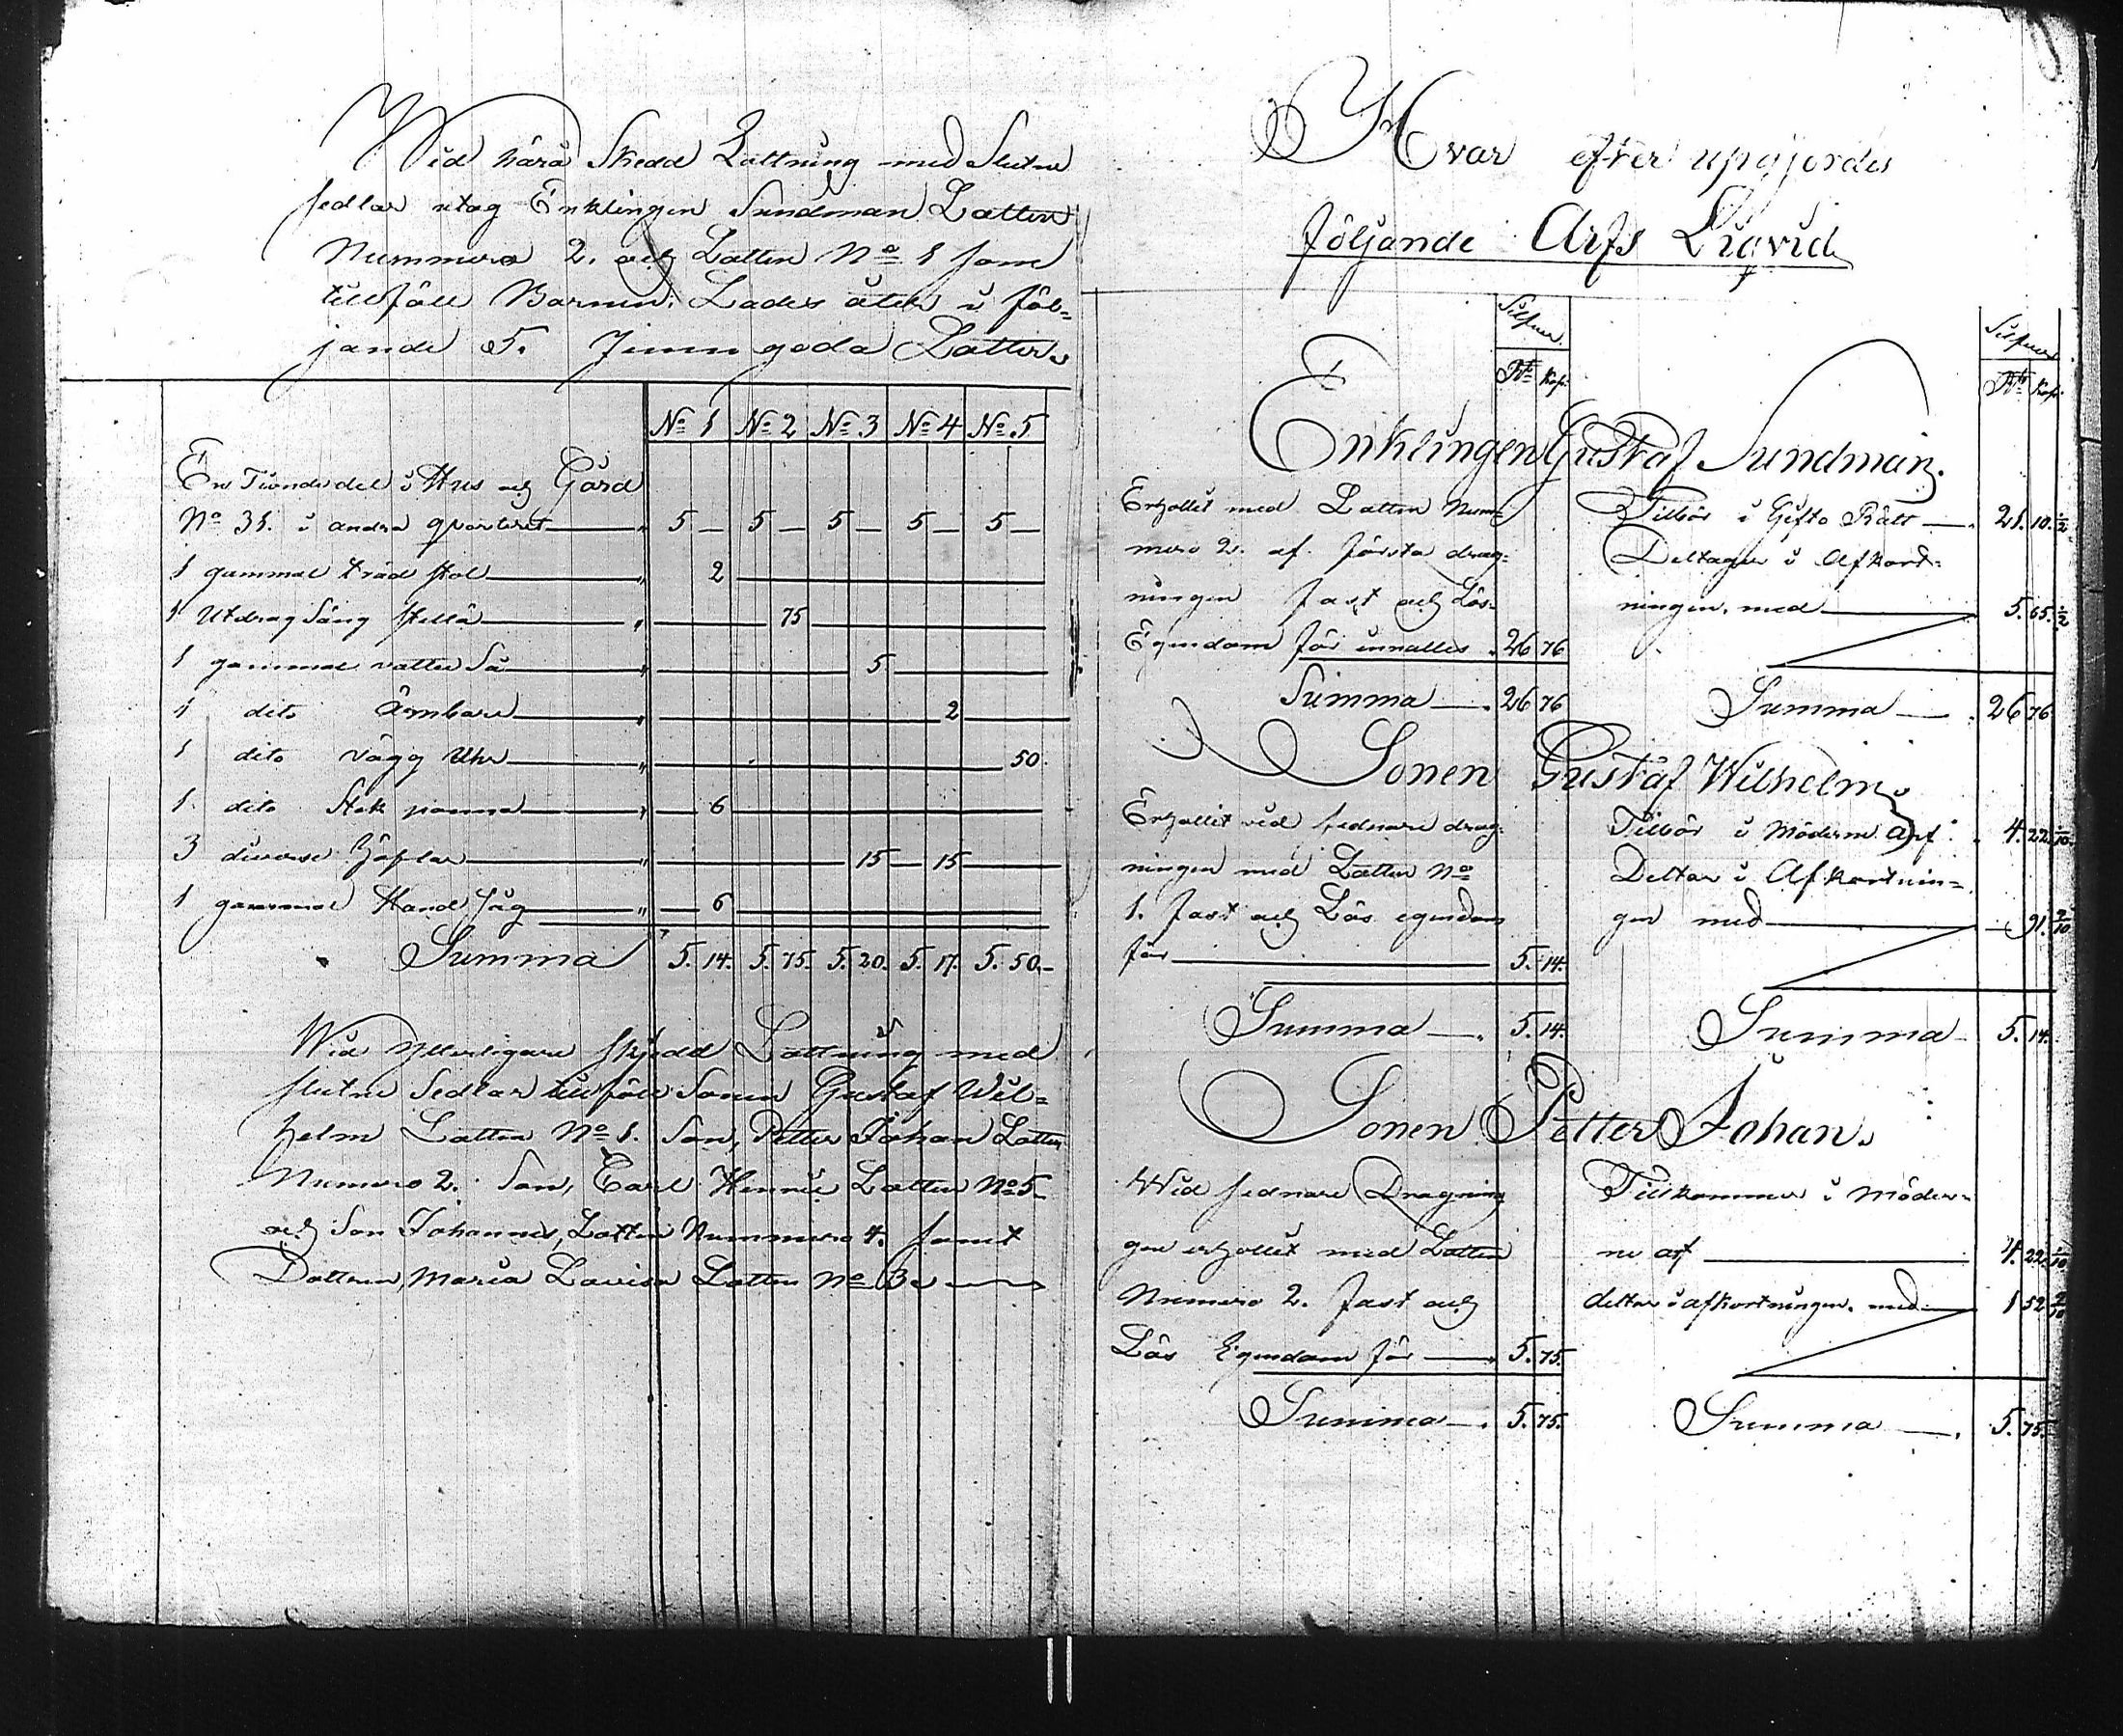 Wid härå Skedd Lottning med Slutne
sedlar utog Enklingen Sundman Lotten
Nummero 2. och Lotten No 1 som
tillföll Barnen, Lades åter i föl=
jande 5. Jemngoda Lotter,
No 1 No 2 No 3 No 4 No 5
En Tiondedel i Hus och Gård
No 31. i andra qvarteret 5 — 5 — 5 — 5 — 5 —
1 gammal träd stol 2
1 Utdrag Säng ställe 75
1 gammal vatten Så 5
1 dito Ämbare 2
1 dito vägg Uhr 50.
1. dito Stek panna 6
3 diverse Gaflar 15 — 15
1 gammal Hand Såg 6
Summa 5. 14. 5. 75. 5. 20. 5. 17. 5. 50.
Wid ytterligare skjedd Lottning med
slutne Sedlar tillföll Sonen Gustaf Wil=
helm Lotten No 1. Son, Petter Johan Lotten
Numero 2. Son, Carl Henric Lotten No 5
och Son Johannes, Lotten Nummero 4. samt
Dottren, Maria Lovisa Lotten No 3.
Hvar efter upgjordes
följande Arfs Liqvid
Silfver.
Rb Kop:
Silfver
Rb Kop:
Enklingen Gustaf Sundman.
Erhållit med Lotten Num=
mero 2. af första drag=
ningen fast och Lös=
Egendom för innalles 26 76
Summa 26 76
Tillkommer i Gifto Rätt 21. 10. 1/2
Deltager i Afkort=
ningen, med 5. 65. 1/2
Summa 26 76
Sonen Gustaf Wilhelm,
Erhållit vid sednare drag=
ningen med Lotten No
1. fast och Lös egendom
för 5. 14.
Summa 5. 14.
Tillkommer i Möderne Arf 4. 22 1/10.
Deltar i Afkortnin=
gen med 91. 9/10
Summa 5. 14.
Sonen Petter Johan,
Wid sednare Dragnin
gen erhållit med Lotten
Numero 2. fast och
Lös Egendom för 5. 75.
Summa 5. 75.
Tillkommer i Möder=
ne arf 4. 22 1/10
deltar i afkortningen, med 1 52 9/10
Summa 5. 75.